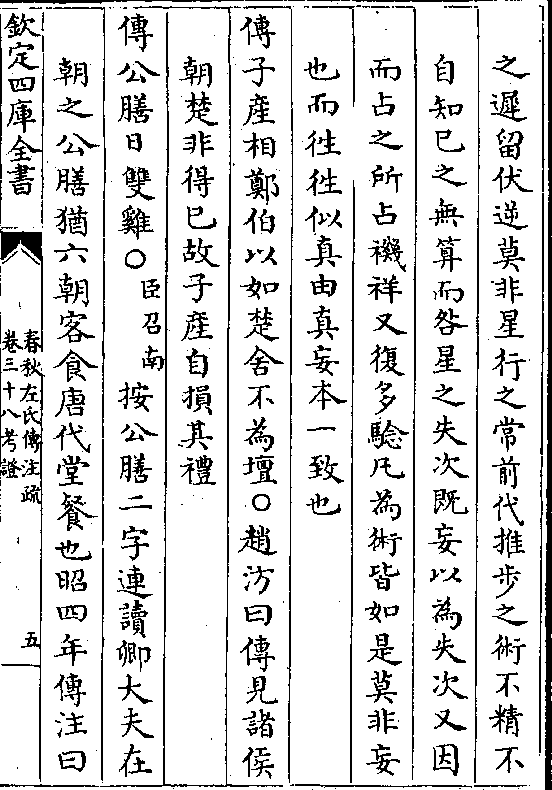 之遲留伏逆莫非星行之常前代推步之術不精不
自知已之無算而咎星之失次既妄以為失次又因
而占之所占禨祥又復多驗凡為術皆如是莫非妄
也而徃徃似真由真妄本一致也
傳子産相鄭伯以如楚舍不為壇○趙汸曰傳見諸侯
朝楚非得已故子産自損其禮
傳公膳日雙雞○臣召南按公膳二字連讀卿大夫在
朝之公膳猶六朝客食唐代堂餐也昭四年傳注曰
欽定四庫全書
春秋左氏傳注疏
卷三十八考證
五